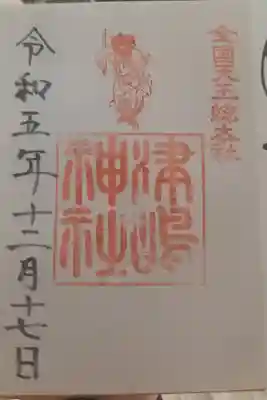 全国天王総本社
津嶋
神社
令和五年十二月十七日